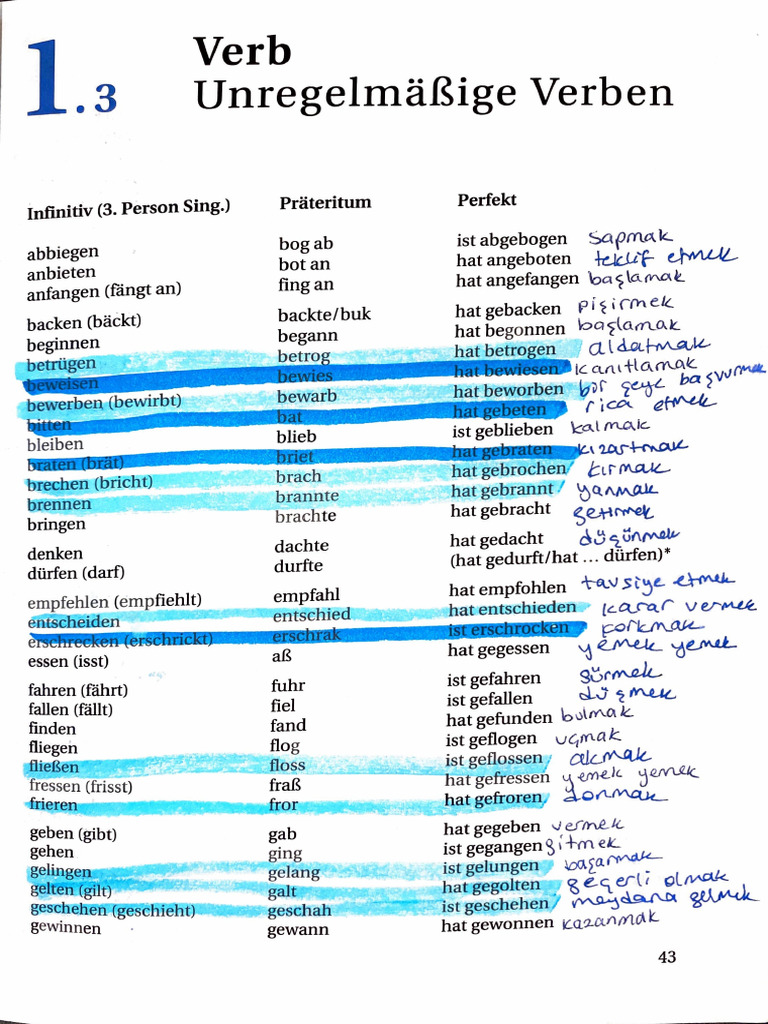 1.3
Verb
Unregelmäßige Verben
Infinitiv (3. Person Sing.) Präteritum Perfekt
abbiegen bog ab ist abgebogen sapmak
anbieten bot an hat angeboten teklif etmek
anfangen (fängt an) fing an hat angefangen başlamak
backen (bäckt) backte/buk hat gebacken pişirmek
beginnen begann hat begonnen başlamak
betrügen betrog hat betrogen aldatmak
beweisen bewies hat bewiesen kanıtlamak
bewerben (bewirbt) bewarb hat beworben bir şeye başvurmak
bitten bat hat gebeten rica etmek
bleiben blieb ist geblieben kalmak
braten (brät) briet hat gebraten kızartmak
brechen (bricht) brach hat gebrochen kırmak
brennen brannte hat gebrannt yanmak
bringen brachte hat gebracht getirmek
denken dachte hat gedacht düşünmek
dürfen (darf) durfte (hat gedurft/hat … dürfen)*
empfehlen (empfiehlt) empfahl hat empfohlen tavsiye etmek
entscheiden entschied hat entschieden karar vermek
erschrecken (erschrickt) erschrak ist erschrocken korkmak
essen (isst) aß hat gegessen yemek yemek
fahren (fährt) fuhr ist gefahren sürmek
fallen (fällt) fiel ist gefallen düşmek
finden fand hat gefunden bulmak
fliegen flog ist geflogen uçmak
fließen floss ist geflossen akmak
fressen (frisst) fraß hat gefressen yemek yemek
frieren fror hat gefroren donmak
geben (gibt) gab hat gegeben vermek
gehen ging ist gegangen gitmek
gelingen gelang ist gelungen başarmak
gelten (gilt) galt hat gegolten geçerli olmak
geschehen (geschieht) geschah ist geschehen meydana gelmek
gewinnen gewann hat gewonnen kazanmak
43